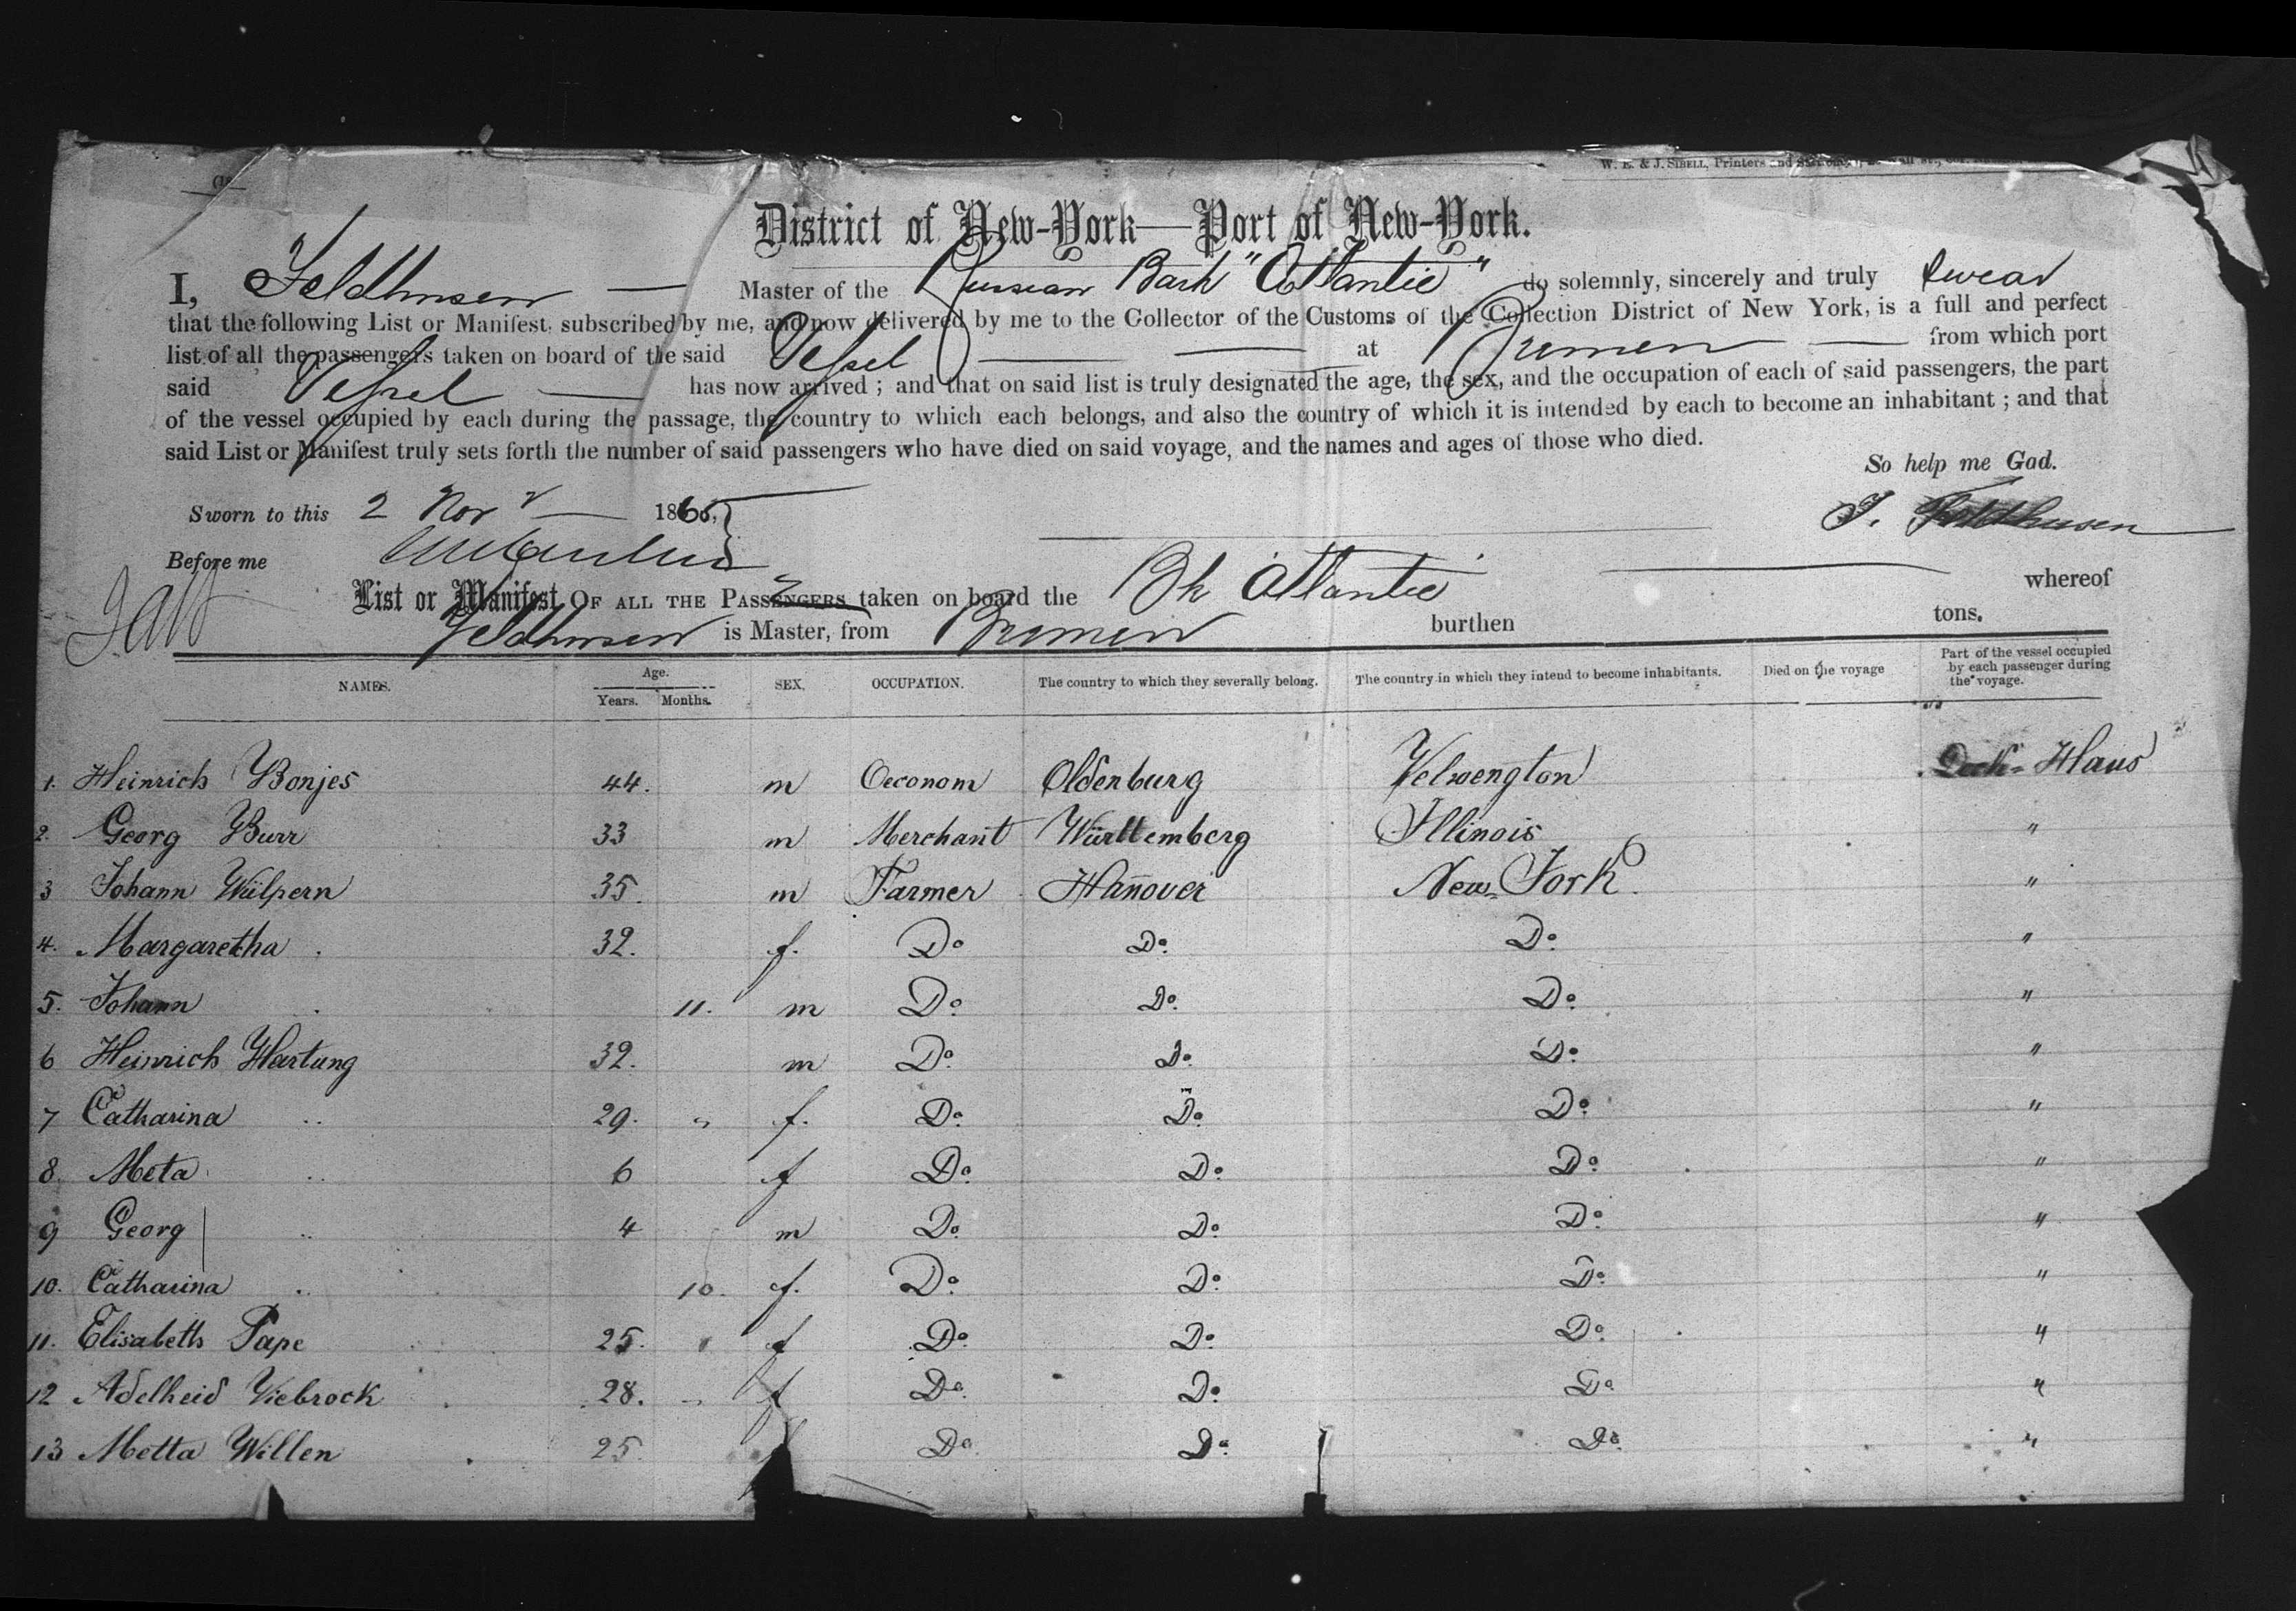 W. E. & J. SIBELL, Printers and
District of New-York—Port of New-York.
I, Feldhusen — Master of the Russian Bark "Atlantic" do solemnly, sincerely and truly swear
that the following List or Manifest, subscribed by me, and now delivered by me to the Collector of the Customs of the Collection District of New York, is a full and perfect
list of all the passengers taken on board of the said Vessel — — at Bremen — from which port
said Vessel — has now arrived ; and that on said list is truly designated the age, the sex, and the occupation of each of said passengers, the part
of the vessel occupied by each during the passage, the country to which each belongs, and also the country of which it is intended by each to become an inhabitant ; and that
said List or Manifest truly sets forth the number of said passengers who have died on said voyage, and the names and ages of those who died.
So help me God.
Sworn to this 2 Nov r — 1865, J. Feldhusen
Before me
List or Manifest OF ALL THE PASSENGERS taken on board the Bk Atlantic — whereof
Feldhusen is Master, from Bremen burthen tons.
NAMES. Age. Years. Months. SEX. OCCUPATION. The country to which they severally belong. The country in which they intend to become inhabitants. Died on the voyage Part of the vessel occupied by each passenger during the voyage.
1. Heinrich Bonjes 44. m Oeconom Oldenburg Velwengton Deck-Haus
2. Georg Burr 33 m Merchant Württemberg Illinois "
3 Johann Wülpern 35. m Farmer Hañover New-York. "
4. Margaretha . 32. f. Do Do. Do. "
5. Johann . 11. m Do. Do. Do. "
6 Heinrich Hartung 32. m Do. Do. Do. "
7 Catharina .. 29. " f. Do. Do. Do. "
8. Meta .. 6 f Do. Do. Do. "
9 Georg .. 4 m Do. Do. Do. "
10. Catharina .. 10. f. Do. Do. Do. "
11. Elisabeth Pape 25. f Do. Do. Do. "
12 Adelheid Viebrock 28. f Do. Do. Do. "
13 Metta Willen 25. Do. Do. Do. "